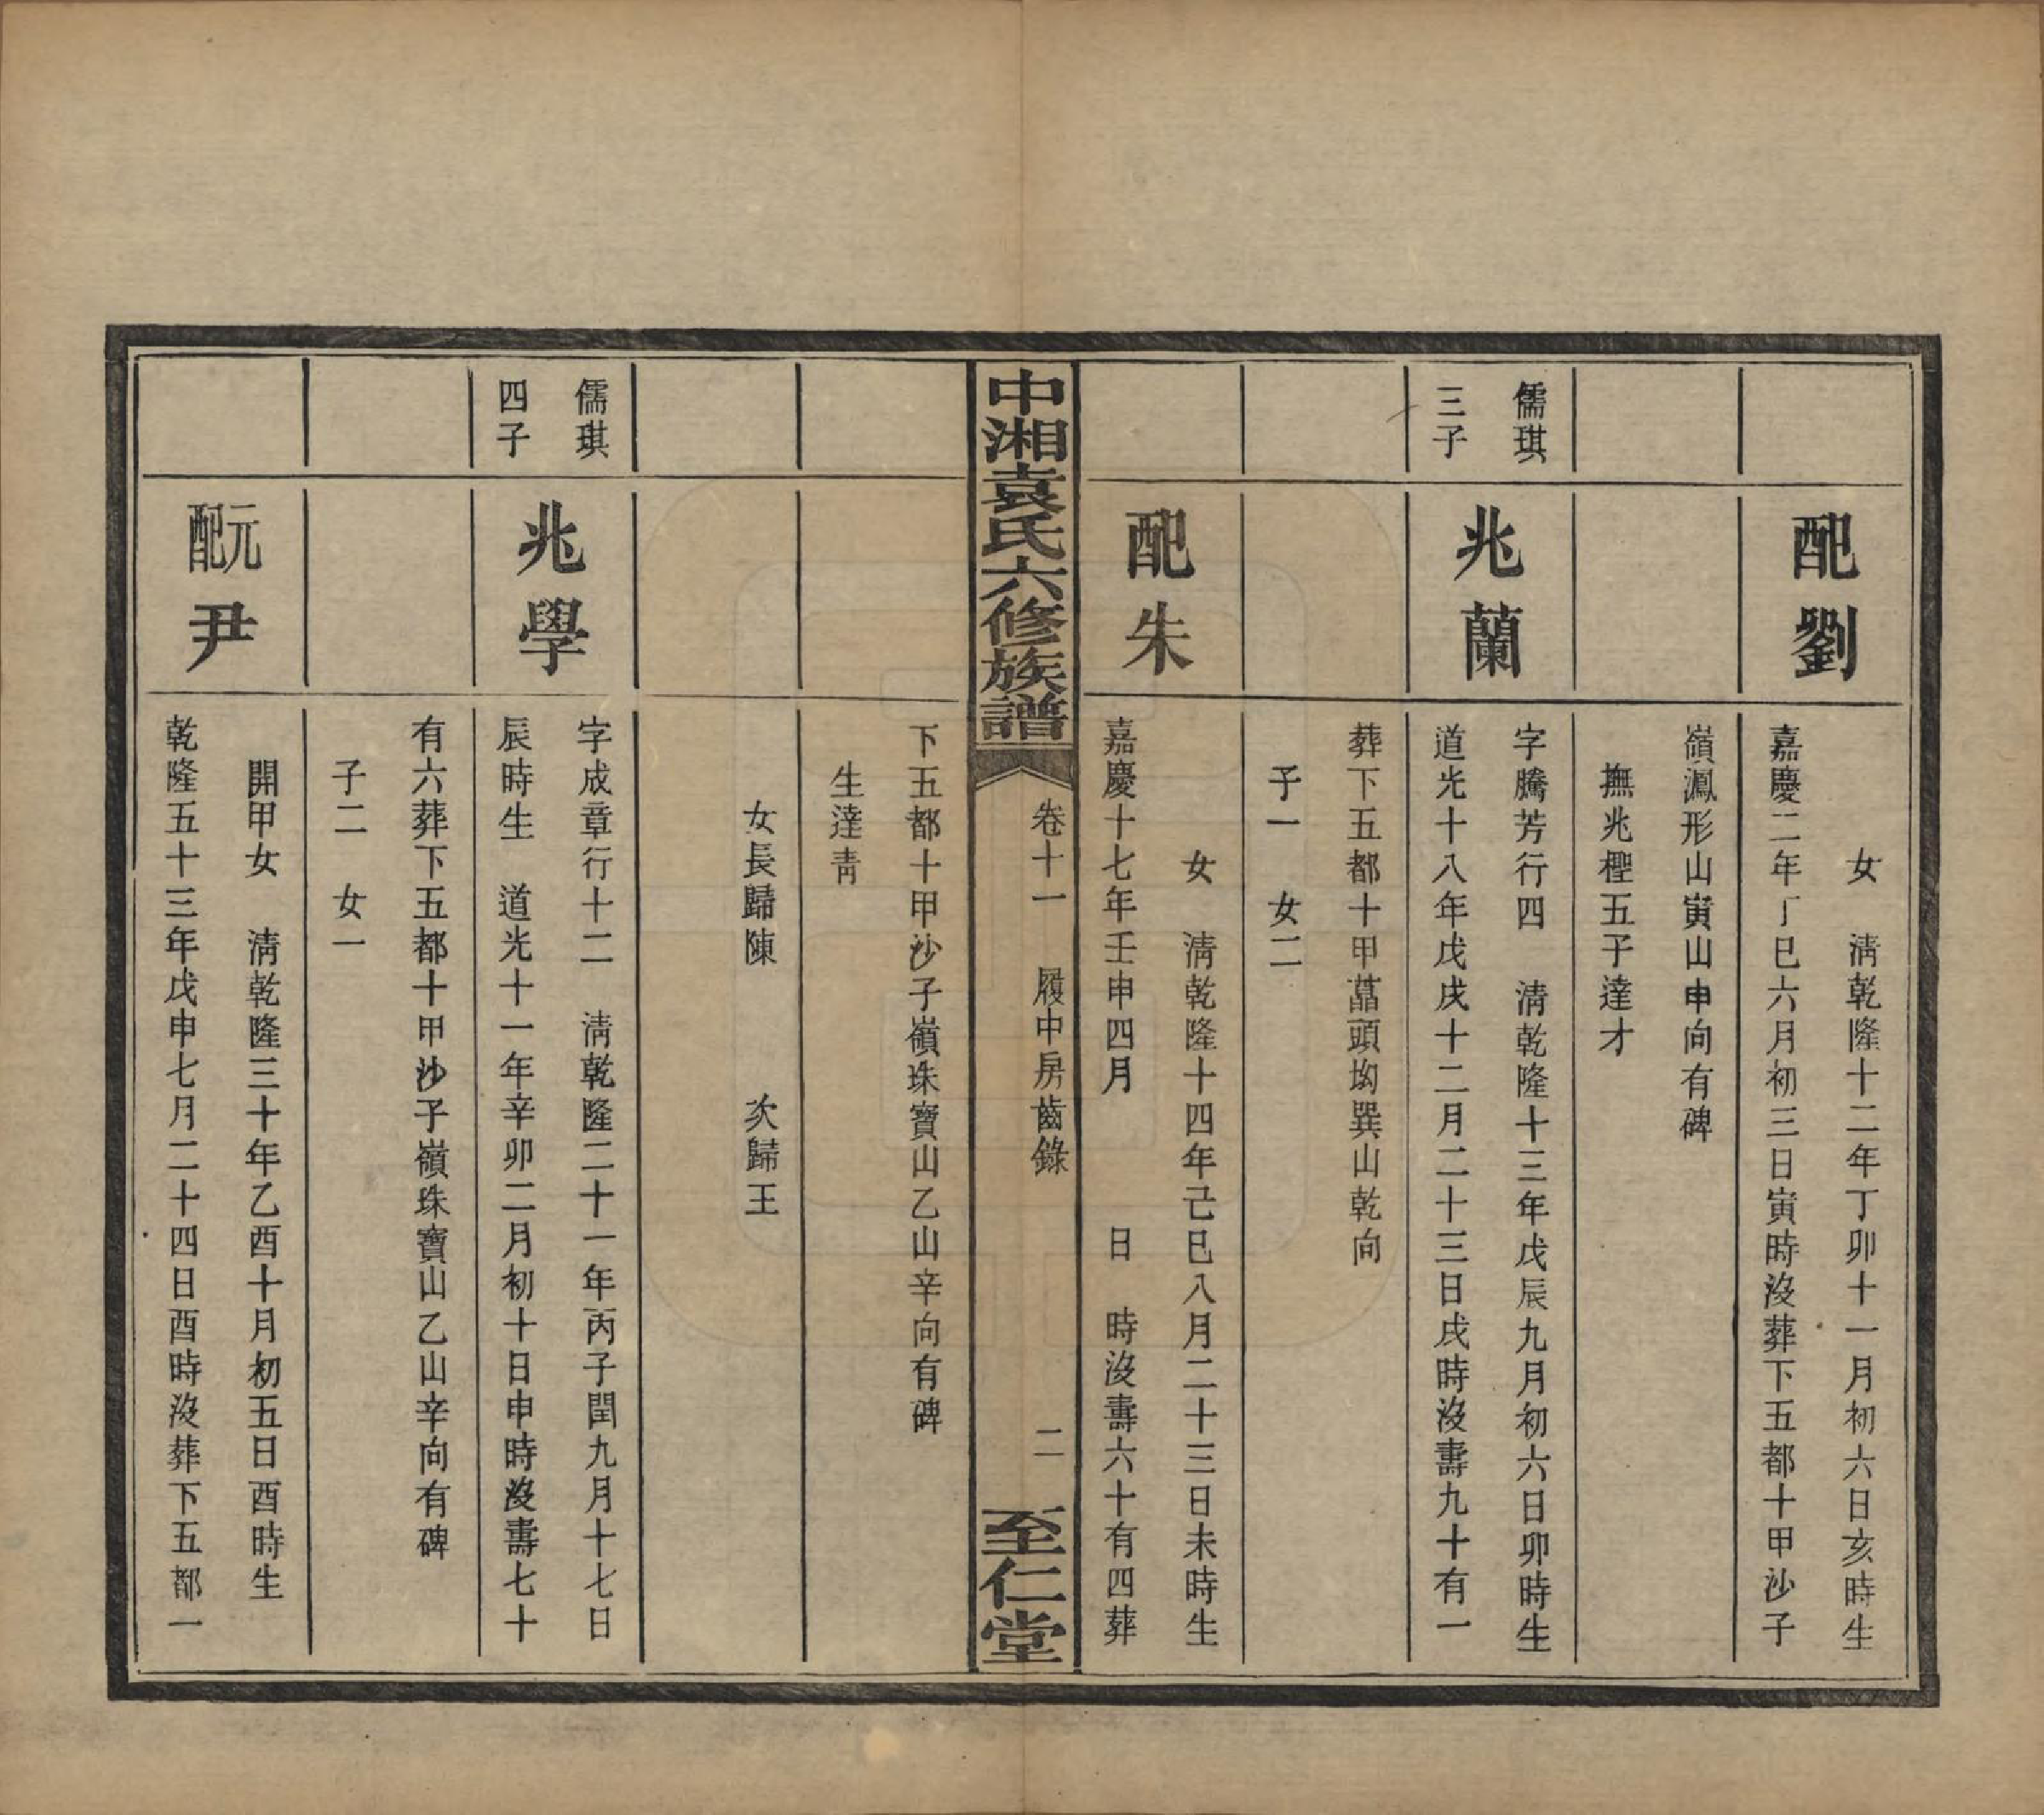 配劉
女　清乾隆十二年丁卯十一月初六日亥時生
嘉慶二年丁巳六月初三日寅時沒葬下五都十甲沙子
嶺鳳形山寅山申向有碑
撫兆檉五子達才
儒琪
三子
兆蘭
字騰芳行四　清乾隆十三年戊辰九月初六日卯時生
道光十八年戊戌十二月二十三日戌時沒壽九十有一
葬下五都十甲藠頭坳巽山乾向
子一　女二
配朱
女　清乾隆十四年己巳八月二十三日未時生
嘉慶十七年壬申四月　　　日　時沒壽六十有四葬
中湘袁氏六修族譜
卷十一　履中房齒錄　二
至仁堂
下五都十甲沙子嶺珠寶山乙山辛向有碑
生達青
女長歸陳　　　次歸王
儒琪
四子
兆學
字成章行十二　清乾隆二十一年丙子閏九月十七日
辰時生　道光十一年辛卯二月初十日申時沒壽七十
有六葬下五都十甲沙子嶺珠寶山乙山辛向有碑
子二　女一
元配尹
開甲女　清乾隆三十年乙酉十月初五日酉時生
乾隆五十三年戊申七月二十四日酉時沒葬下五都一